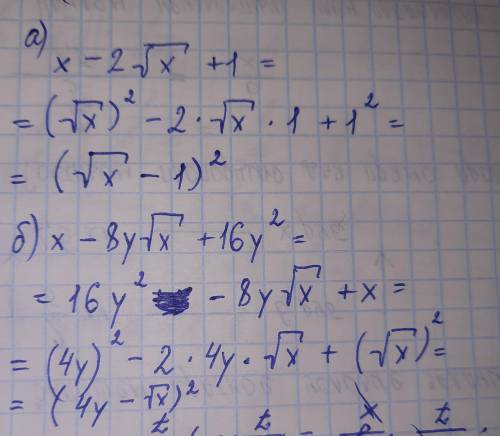 а)
x - 2√x + 1 =
= (√x)² - 2 · √x · 1 + 1² =
= (√x - 1)²
б) x - 8y√x + 16y² =
= 16y² - 8y√x + x =
= (4y)² - 2 · 4y · √x + (√x)² =
= (4y - √x)²